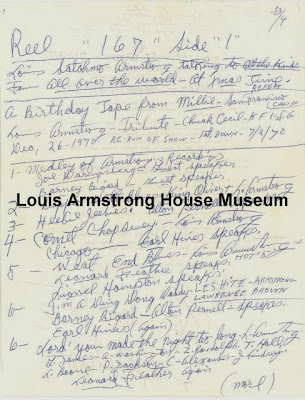 53/4
Reel "167" Side "1"
Louis Satchmo Armstrong talking to all the
Fans all over the world - At
A Birthday Tape from Millie - San Francisco
Louis Armstrong - Tribute - Chuck Cecil - KFI-
Dec, 26-1970 RE-RUN OF SHOW - 7/2/70
1- Medley of Armstrong Records
Joe Darensbourg - Guest Speaker
Barney Bigard - Guest Speaker
2- King Oliver L. Armstrong
3- Heebie Jeebies
Louis Armstrong House Museum
4- Cornet Chop Suey - Louis Armstrong
Chicago - Earl Hines Speaks.
5- West End Blues - Louis Armstrong HOT 5
Leonard Feather speaks
Lionel Hampton Speaks
5- I'm A Ding Dong Daddy - LES HITE - ARMSTRONG
LAWRENCE BROWN
6- Barney Bigard - Alton Purnell - Speakes.
Earl Hines Again
6- Lord you made the Night too long L. Armstrong
Z. Randolph T. Hall
L. Boone - P. Jackson - C. Alexander - J. Lindsey.
Leonard Feather again
(more)